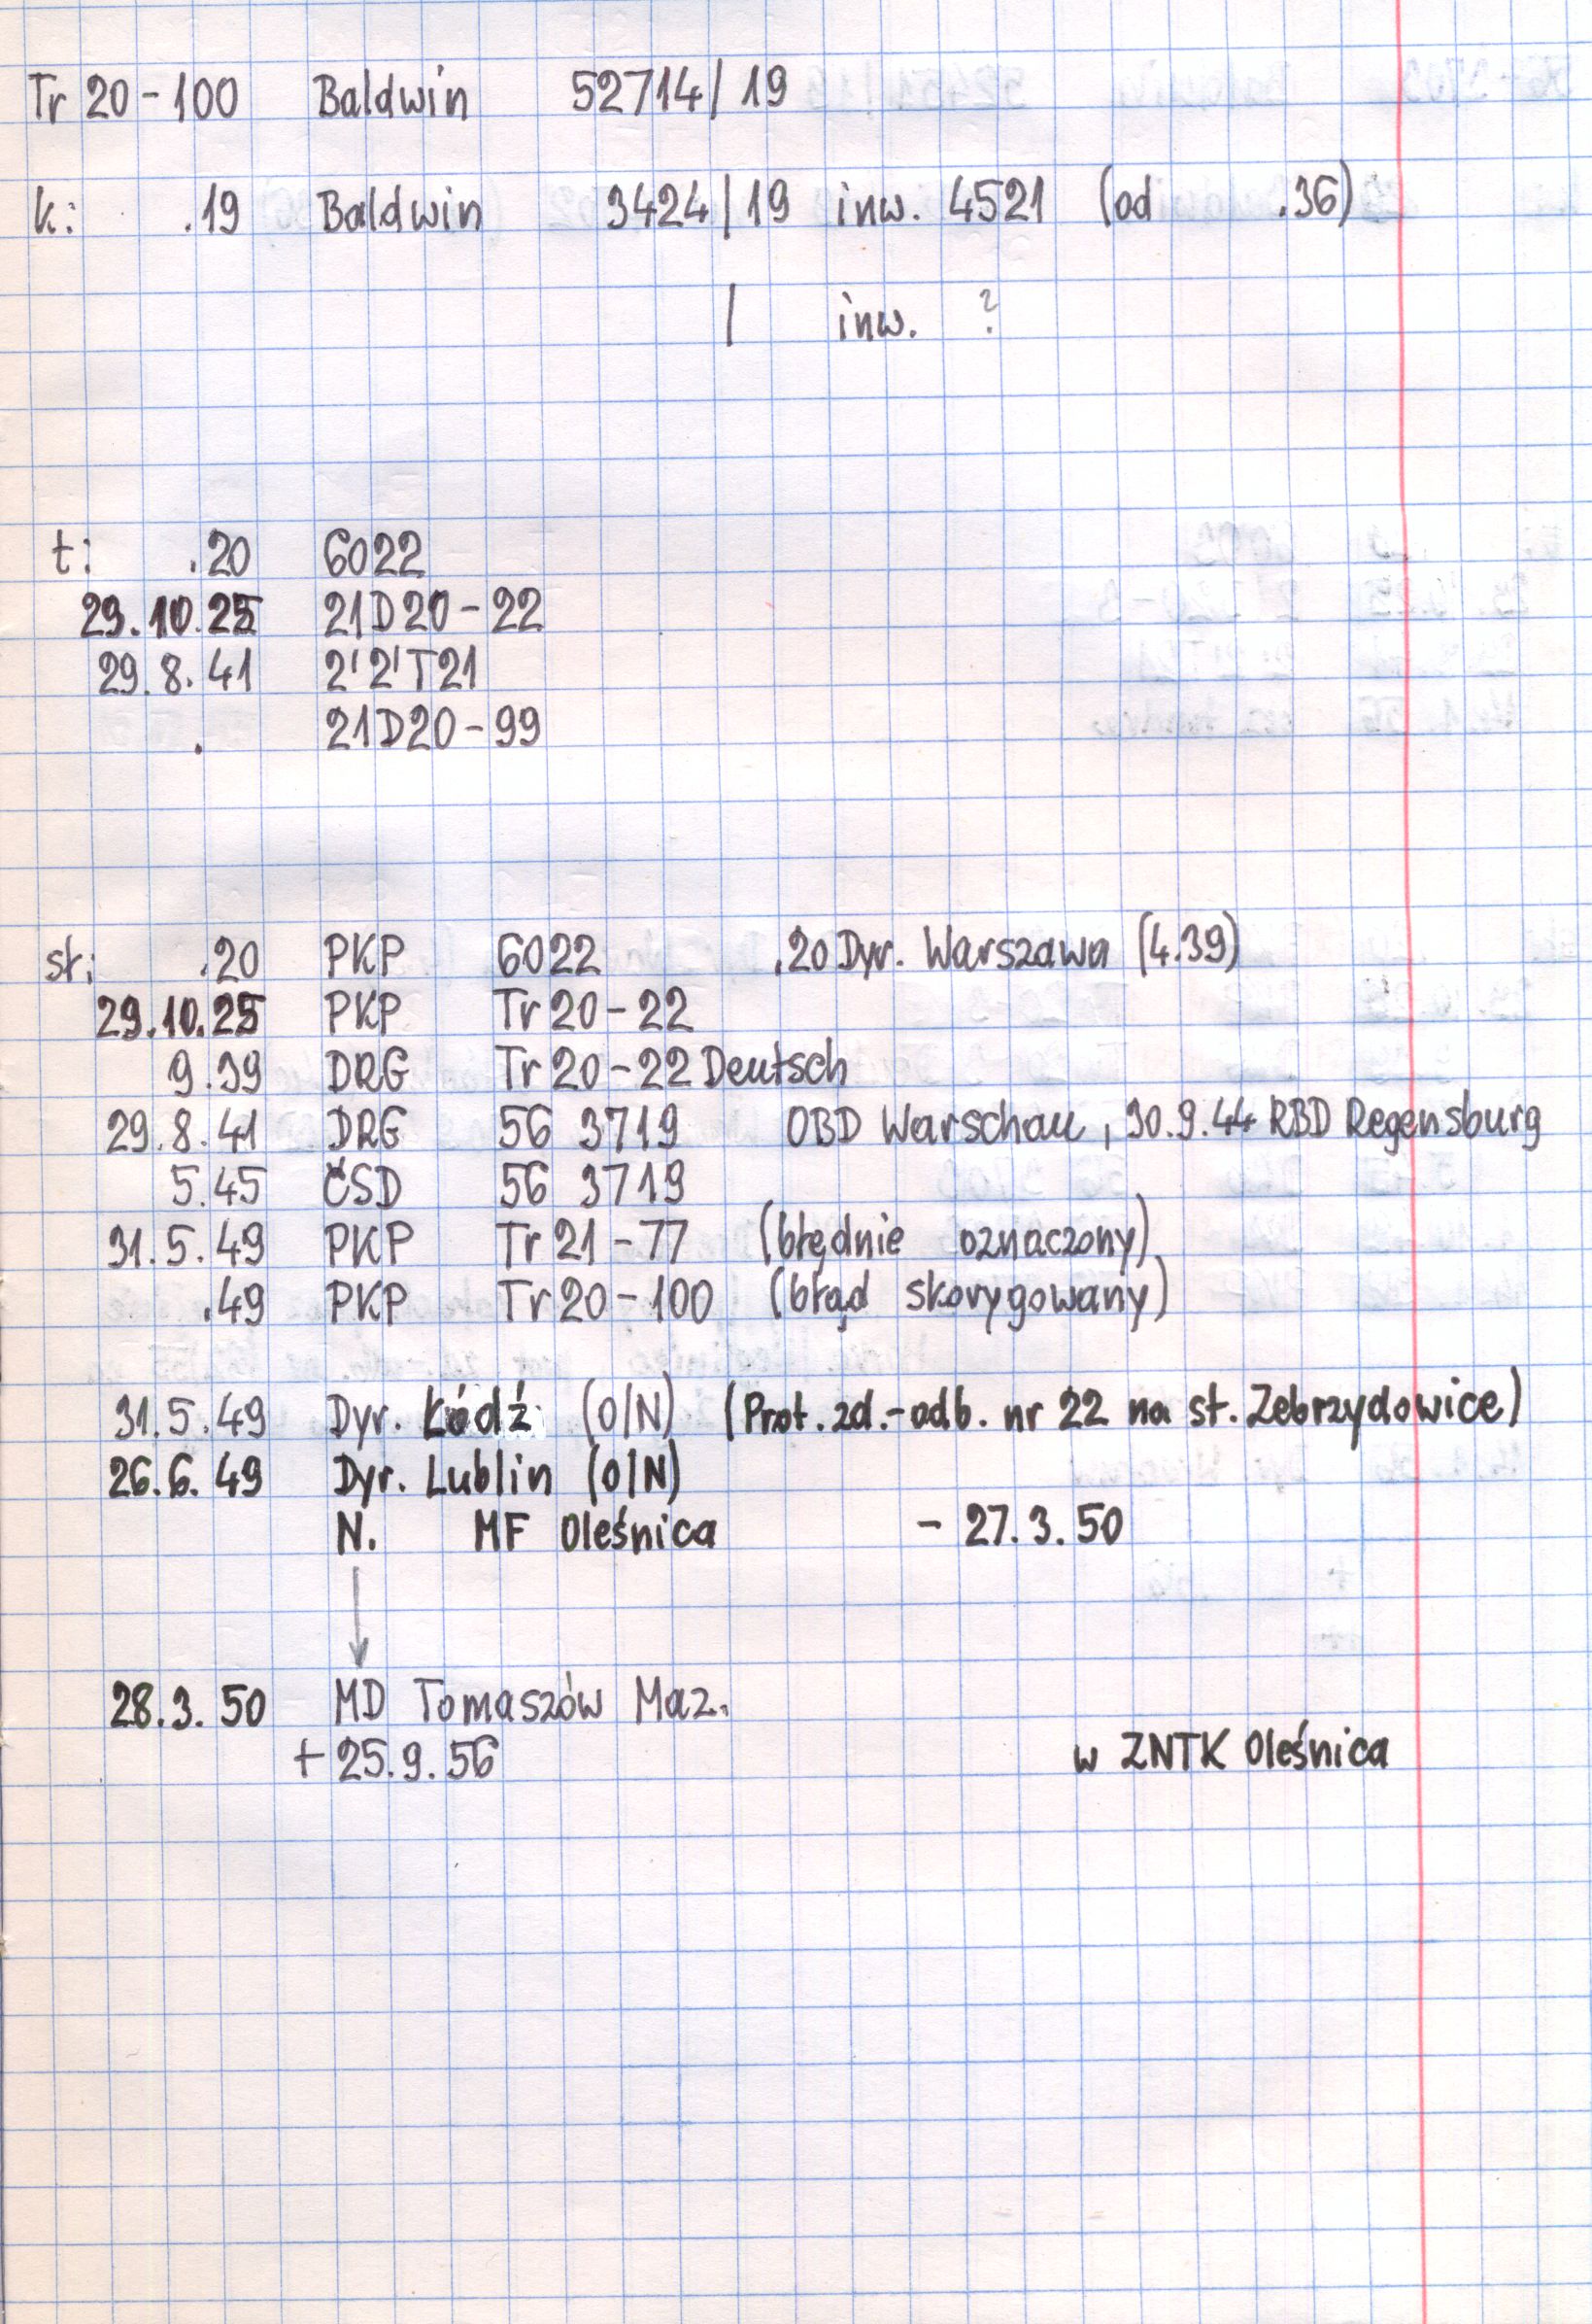 Tr 20-100 Baldwin 52714/19
k: .19 Baldwin 3424/19 inw. 4521 (od .36)
/ inw. ?
t: .20 6022
29.10.25 21D20-22
29.8.41 2'2'T21
. 21D20-99
st: .20 PKP 6022 .20 Dyr. Warszawa (4.39)
29.10.25 PKP Tr 20-22
9.39 DRG Tr 20-22 Deutsch
29.8.41 DRG 56 3719 OBD Warschau, 30.9.44 RBD Regensburg
5.45 ČSD 56 3719
31.5.49 PKP Tr 21-77 (błędnie oznaczony)
.49 PKP Tr 20-100 (błąd skorygowany)
31.5.49 Dyr. Łódź (O/N) (Prot. zd.-odb. nr 22 na st. Zebrzydowice)
26.6.49 Dyr. Lublin (O/N)
N. MF Oleśnica - 27.3.50
28.3.50 MD Tomaszów Maz.
+ 25.9.56 w ZNTK Oleśnica